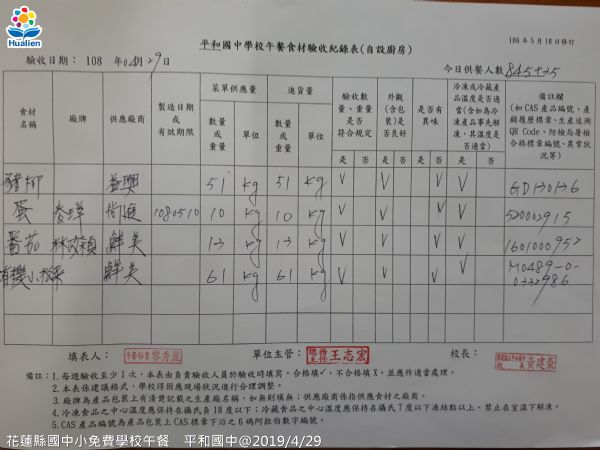 Hualien
平和國中學校午餐食材驗收紀錄表(自設廚房)
106年5月18日修訂
驗收日期： 108 年04月29日
今日供餐人數845+35
食材名稱 廠牌 供應廠商 製造日期或有效期限 菜單供應量 進貨量 驗收數量、重量是否符合規定 外觀(含包裝)是否良好 是否有異味 冷凍或冷藏產品溫度是否適當(含如為冷凍產品事先解凍，其溫度是否適當) 備註欄(如CAS產品編號、產銷履歷標章、生產追溯QR Code、防檢局屠檢合格標章編號、異常狀況等)
數量或重量 單位 數量或重量 單位
是 否 是 否 是 否 是 否
豬柳 益興 51 kg 51 kg V V V V
蛋 1080510 10 kg 10 kg V V V V 520002915
番茄 鮮美 13 kg 13 kg V V V V
有機小松菜 鮮美 61 kg 61 kg V V V V M0489-0-
填表人： 單位主管： 王志宏 校長： 黃建榮
備註：1.每週驗收至少1次，本表由負責驗收人員於驗收時填寫，合格填✓，不合格填X，並應作適當處理。
2.本表係建議格式，學校得因應現場狀況進行合理調整。
3.廠牌為產品包裝上有清楚記載之生產廠名稱，如無則填無；供應廠商係指供應食材之廠商。
4.冷凍食品之中心溫度應保持在攝氏負18度以下；冷藏食品之中心溫度應保持在攝氏7度以下凍結點以上，禁止在室溫下解凍。
5.CAS產品編號為產品包裝上CAS標章下沿之6碼阿拉伯數字編號。
花蓮縣國中小免費學校午餐 平和國中@2019/4/29